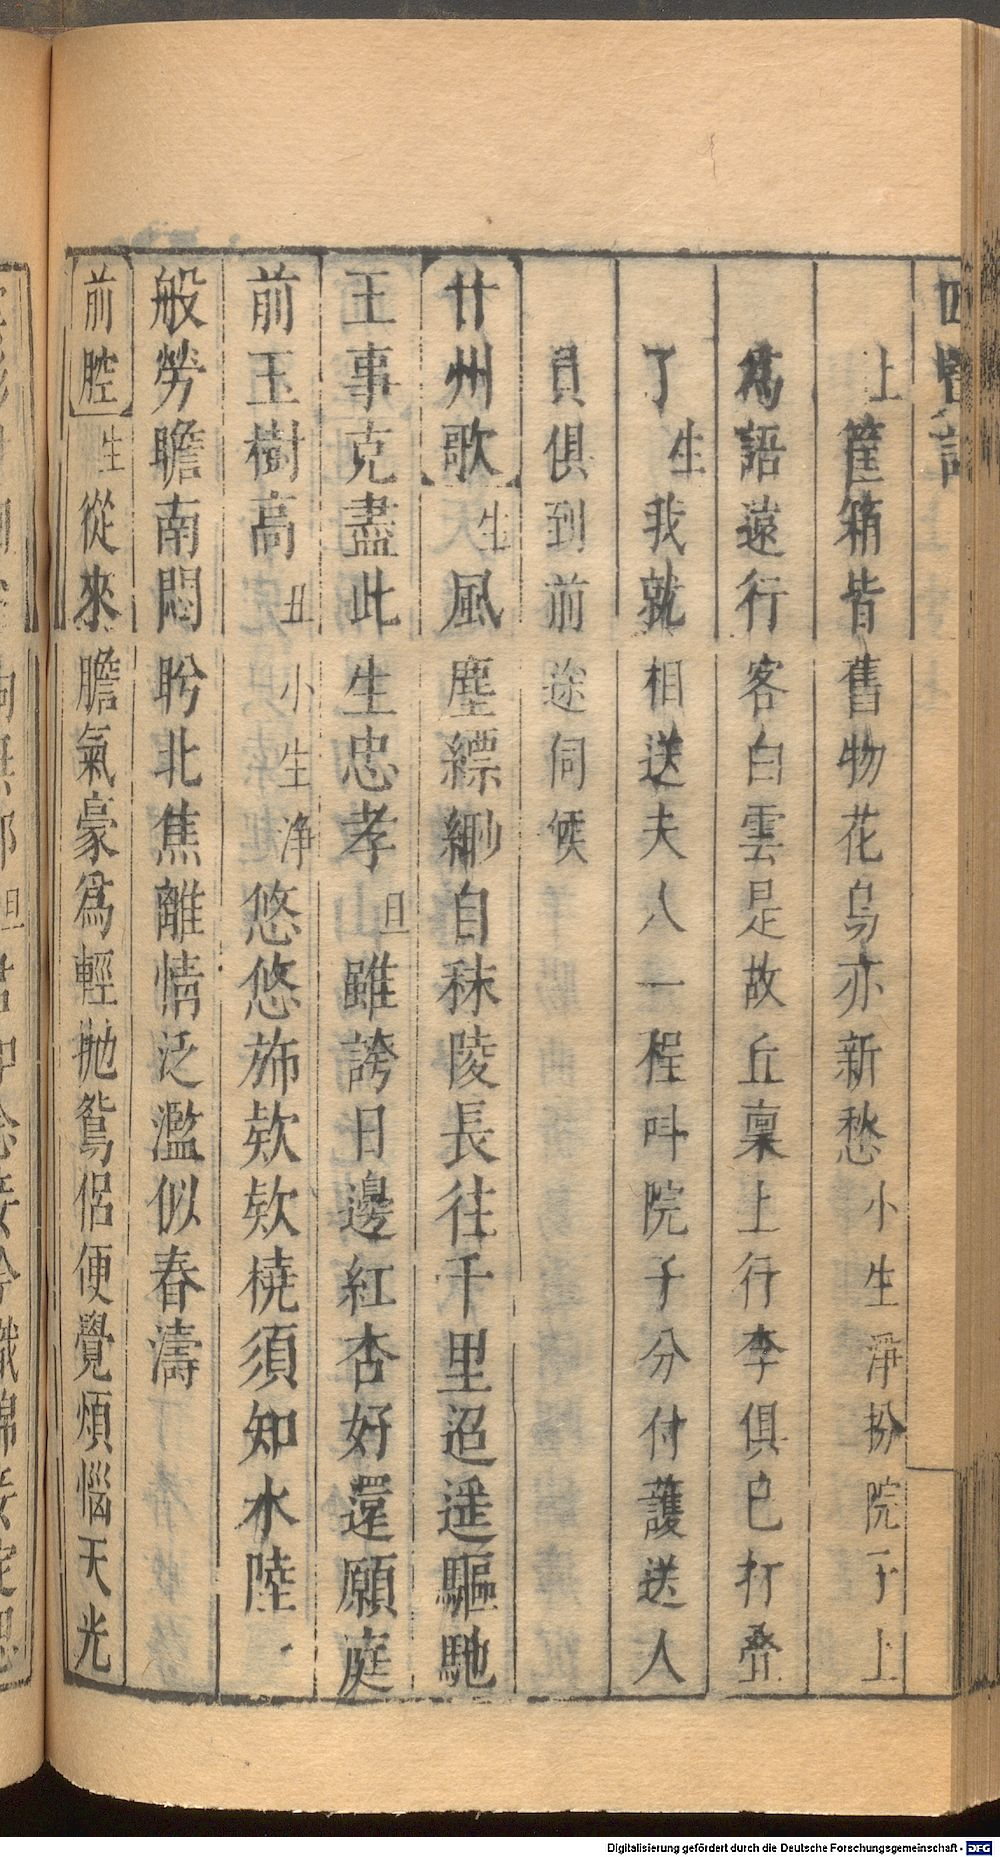 上篋箱皆舊物花鳥亦新愁小生淨扮院子上
爲語遠行客白雲是故丘稟上行李俱已打叠
了生我就相送夫人一程叫院子分付護送人
員俱到前途伺候
廿州歌生風塵縹緲自秣陵長往千里迢遥驅馳
王事克盡此生忠孝旦雖誇日邊紅杏好還願庭
前玉樹高丑小生净悠悠斾欵欵橈須知水陸一
般勞瞻南悶盻北焦離情泛濫似春濤
前腔生從來膽氣豪爲輕抛鴛侶便覺煩惱天光
Digitalisierung gefördert durch die Deutsche Forschungsgemeinschaft - DFG